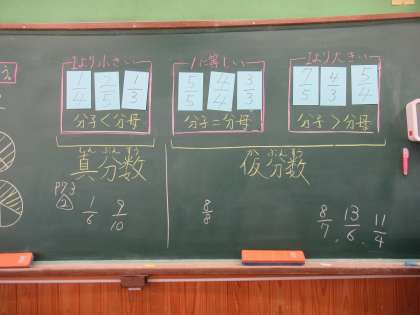 1より小さい
1/4 2/5 1/3
分子<分母
1に等しい
5/5 4/4 3/3
分子=分母
1より大きい
7/5 4/3 5/4
分子>分母
しんぶんすう
真分数
かぶんすう
仮分数
P73
②
1/6 9/10
8/8
8/7, 13/6, 11/4